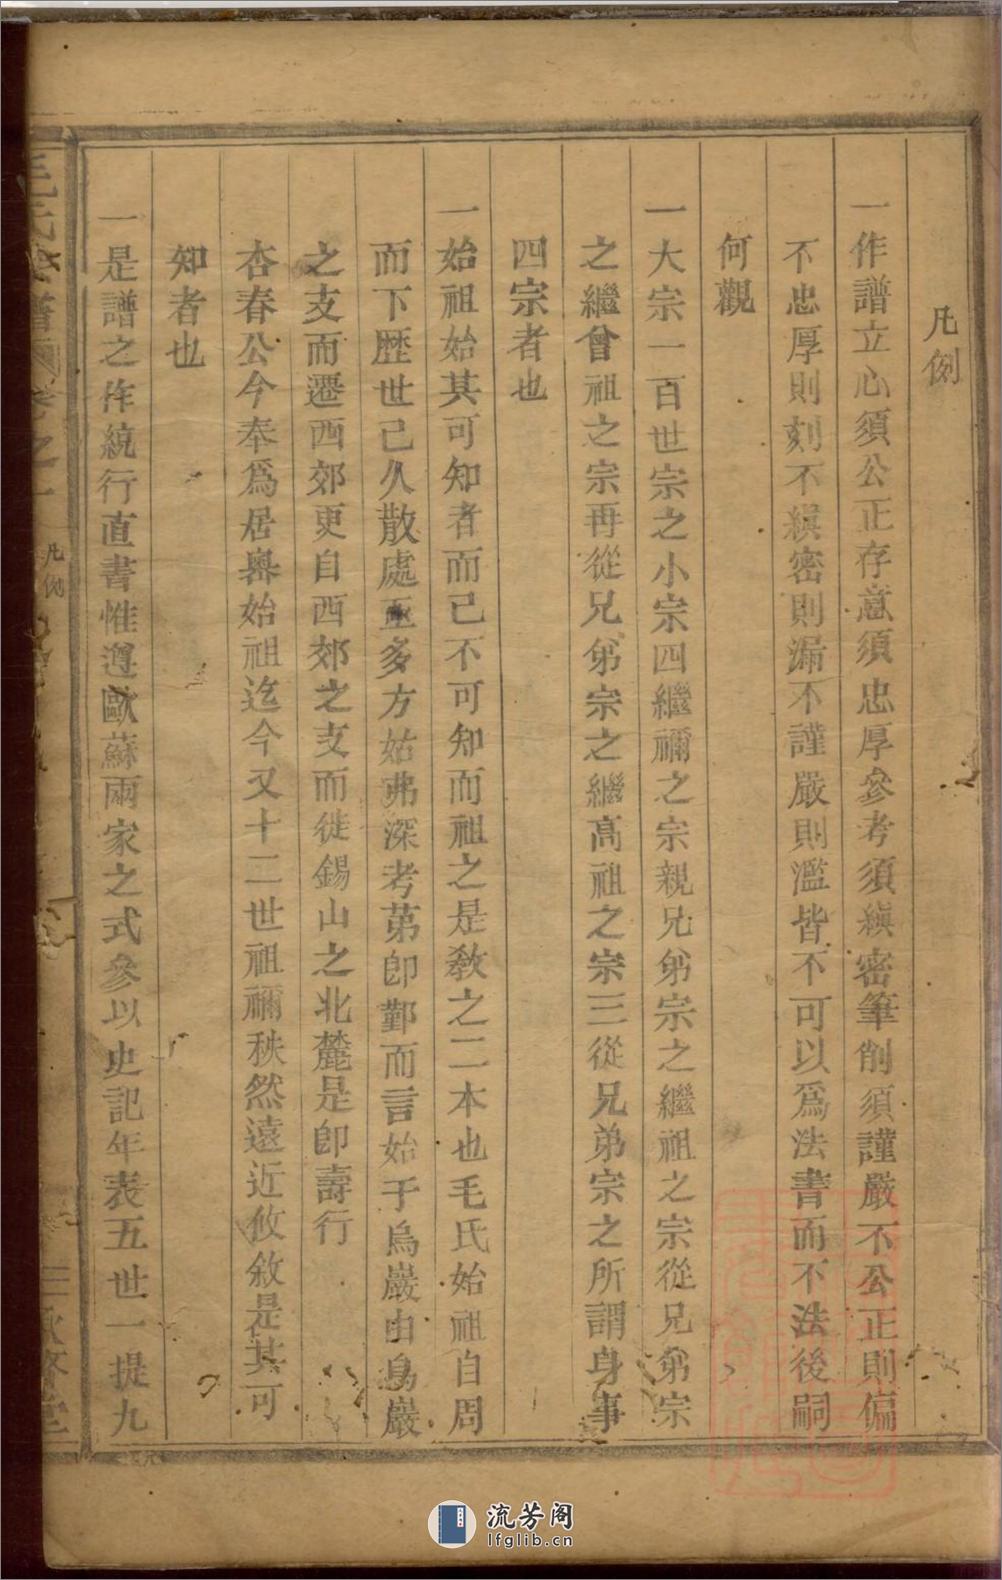 凡例
一作譜立心須公正存意須忠厚參考須縝密筆削須謹嚴不公正則偏
不忠厚則刻不縝密則漏不謹嚴則濫皆不可以爲法書而不法後嗣
何觀
一大宗一百世宗之小宗四繼禰之宗親兄弟宗之繼祖之宗從兄弟宗
之繼曾祖之宗再從兄弟宗之繼高祖之宗三從兄弟宗之所謂身事
四宗者也
一始祖始其可知者而已不可知而祖之是教之二本也毛氏始祖自周
而下歷世已久散處亟多方姑弗深考第卽鄞而言始于烏巖由烏巖
之支而遷西郊更自西郊之支而徙錫山之北麓是卽壽行
杏春公今奉爲居嶴始祖迄今又十二世祖禰秩然遠近攸敘是其可
知者也
一是譜之作統行直書惟遵歐蘇兩家之式參以史記年表五世一提九
毛氏 譜 卷之一
凡例
三
流芳阁
lfglib.cn